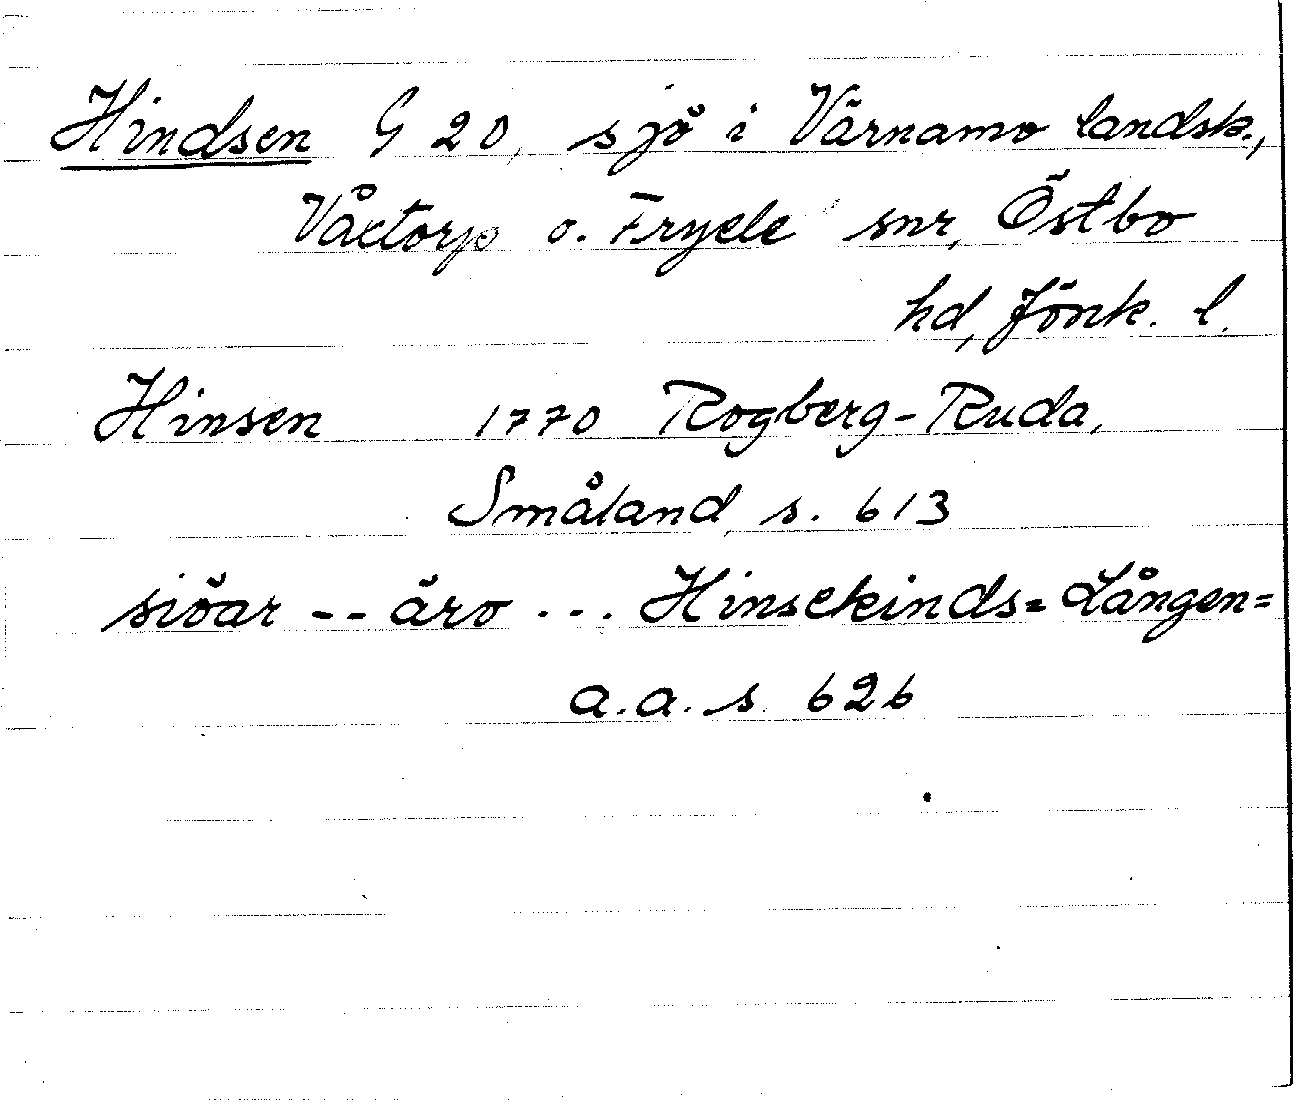 Hindsen G 20, sjö i Värnamo landsk.,
Våxtorp o. Fryele snr, Östbo
hd, Jönk. l.
Hinsen 1770 Rogberg-Ruda,
Småland s. 613
siöar -- äro ... Hinsekinds= Lången=
a.a. s. 626